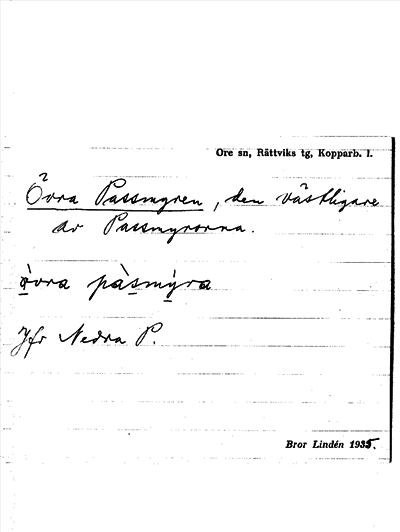 Ore sn, Rättviks tg, Kopparb. l.
Övra Passmyren, den västligare
av Passmyrorna.
òvra pàsmýra
Jfr Nedra P.
Bror Lindén 1935.